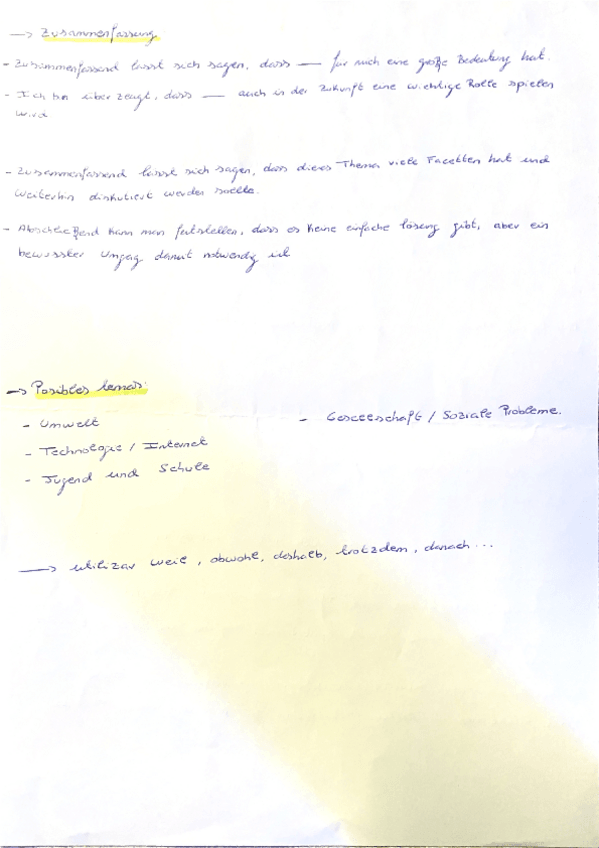 → Zusammenfassung
- Zusammenfassend lässt sich sagen, dass — für mich eine große Bedeutung hat.
- Ich bin überzeugt, dass — auch in der Zukunft eine wichtige Rolle spielen
wird
- Zusammenfassend lässt sich sagen, dass dieses Thema viele Facetten hat und
weiterhin diskutiert werden sollte.
- Abschließend kann man feststellen, dass es keine einfache lösung gibt, aber ein
bewusster Umgag damit notwendig ist
→ Posibles temas:
- Umwelt
- Gesellschaft / Soziale Probleme.
- Technologie / Internet
- Jugend und Schule
→ utilizar weil, obwohl, deshalb, trotzdem, danach...